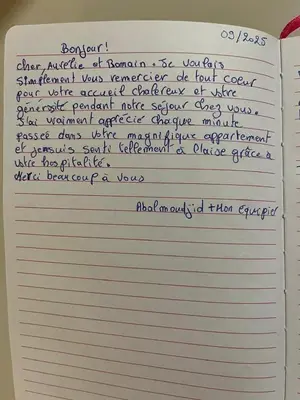 09/2025
Bonjour!
cher, Aurélie et Romain. Je voulais
simplement vous remercier de tout coeur
pour votre accueil chaleureux et votre
générosité pendant notre séjour chez vous.
J'ai vraiment apprécié chaque minute
passée dans votre magnifique appartement
et jemsuis senti tellement à l'aise grâce à
votre hospitalité.
Merci beaucoup à vous
Abdlmoudjid + Mon équipier